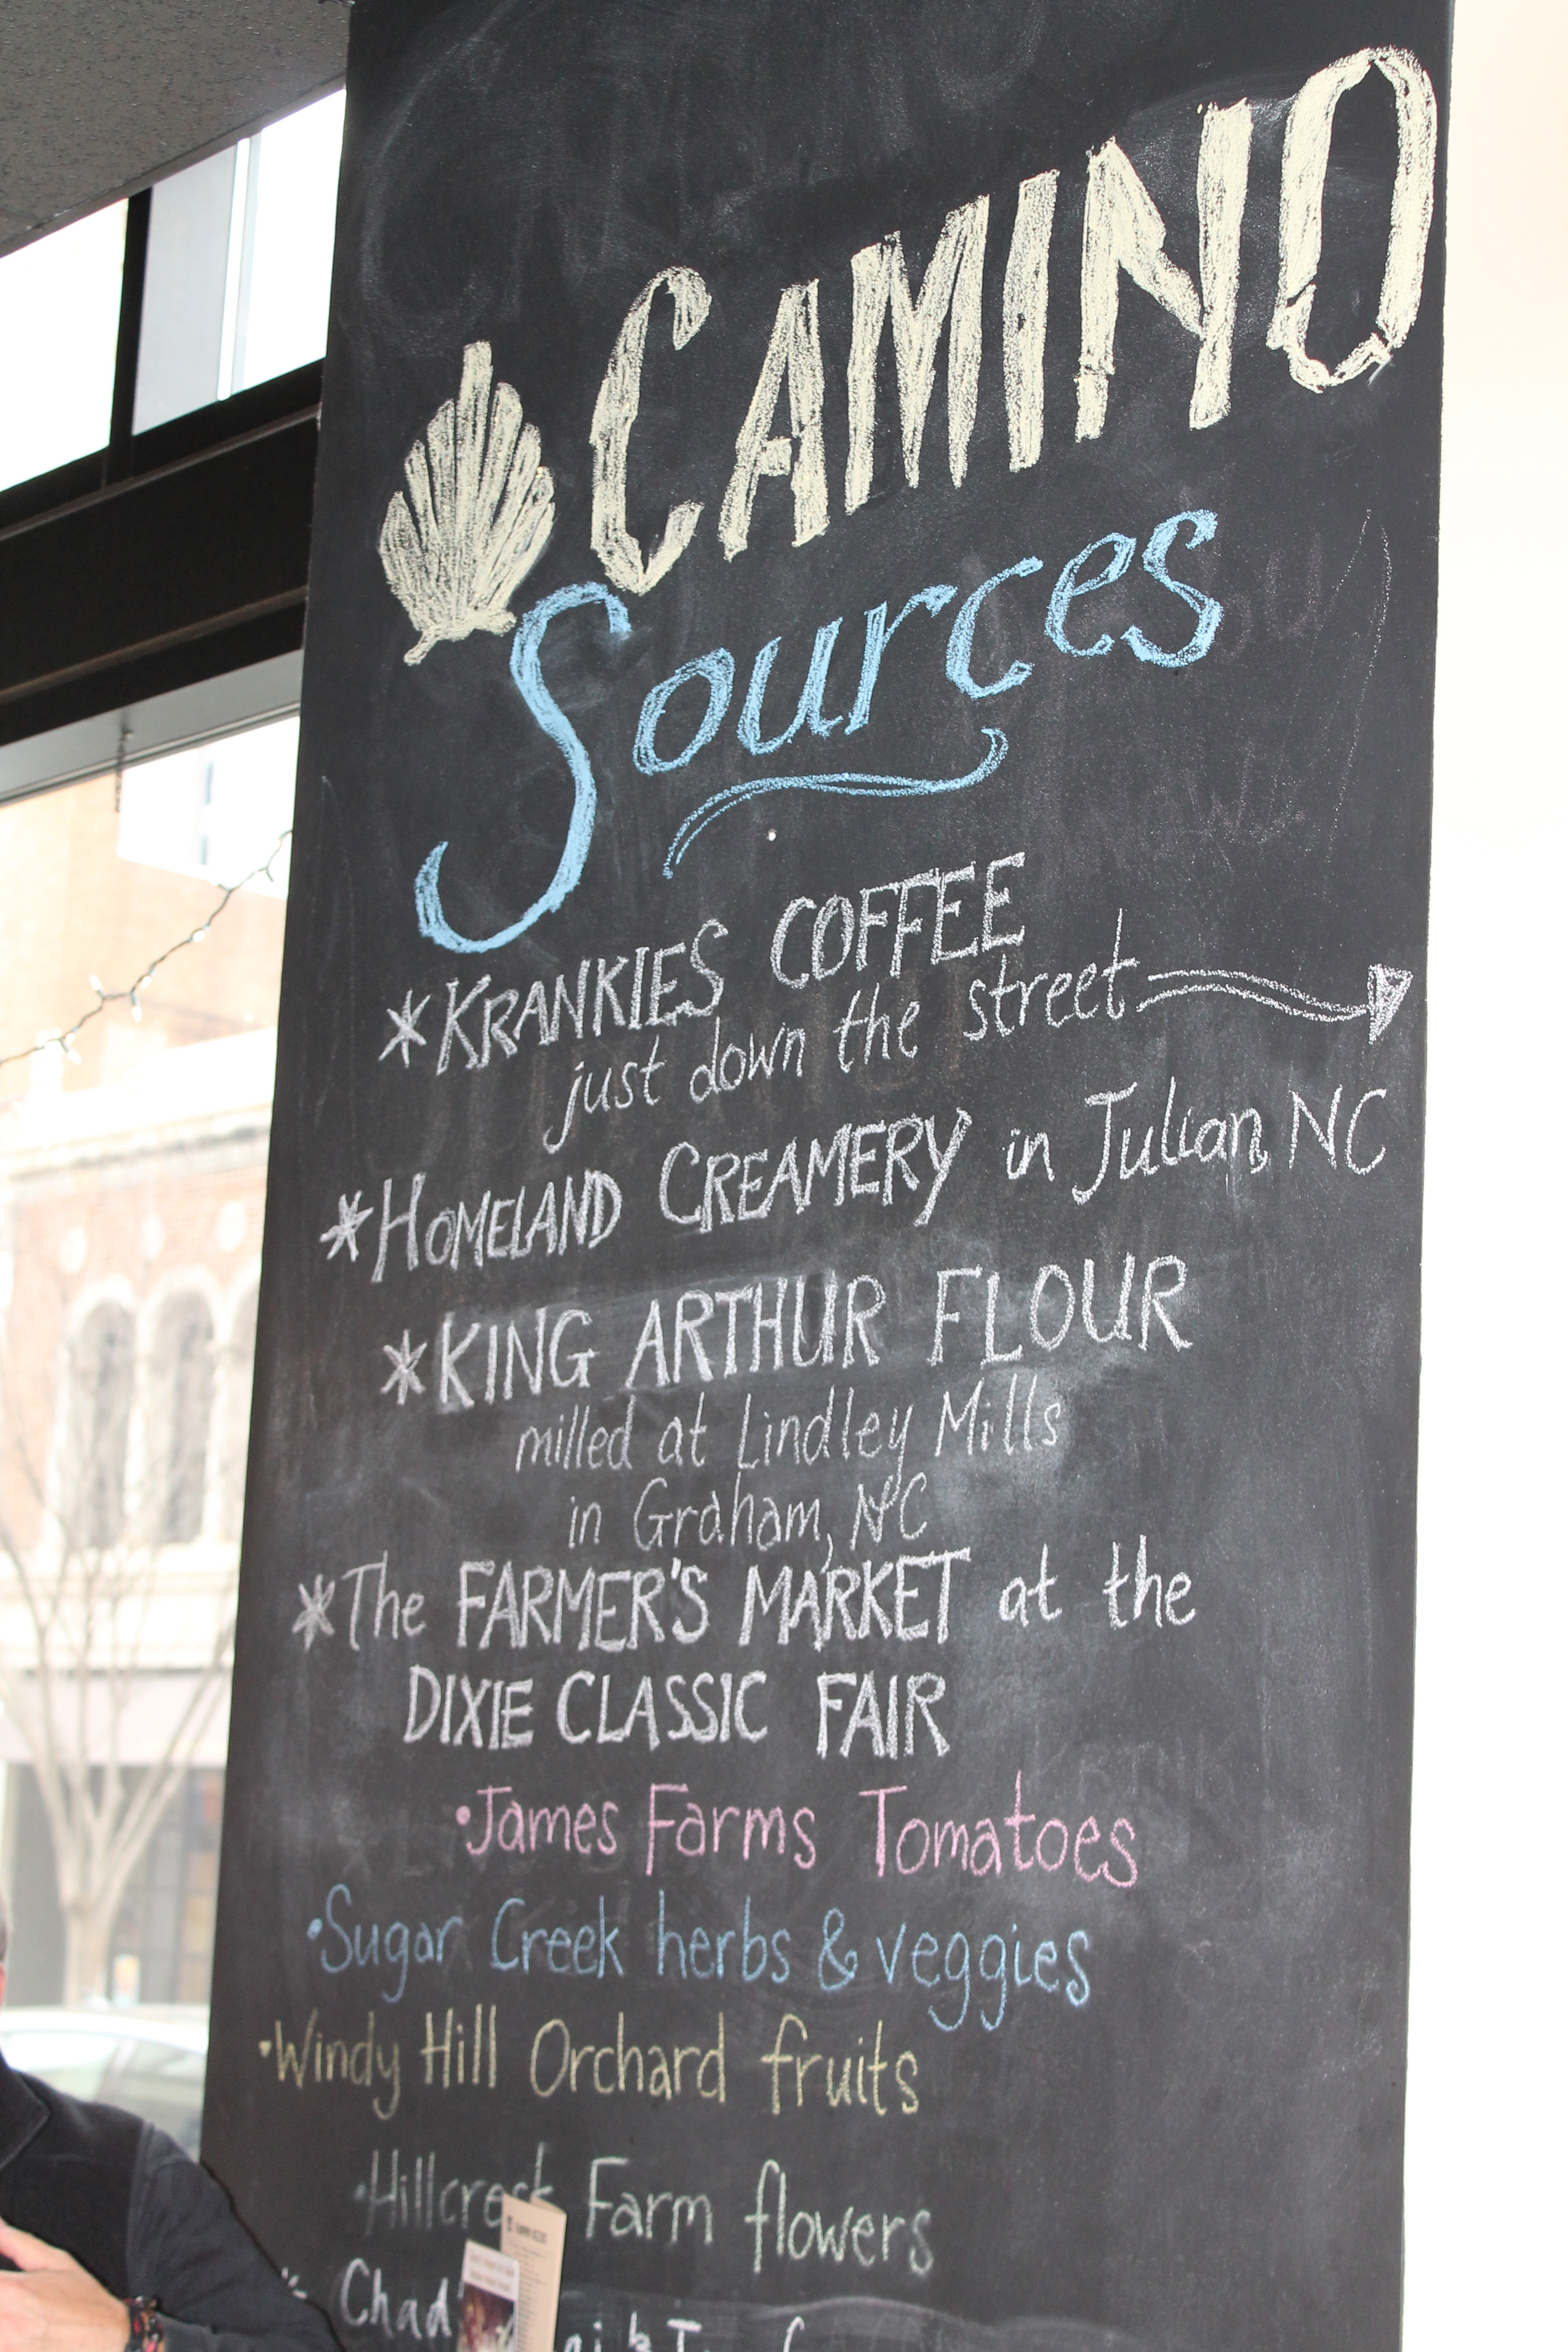 CAMINO
Sources
*KRANKIES COFFEE
just down the street
*HOMELAND CREAMERY in Julian, NC
*KING ARTHUR FLOUR
milled at Lindley Mills
in Graham, NC
*The FARMER'S MARKET at the
DIXIE CLASSIC FAIR
•James Farms Tomatoes
•Sugar Creek herbs & veggies
•Windy Hill Orchard fruits
•Hillcrest Farm flowers
* Chad